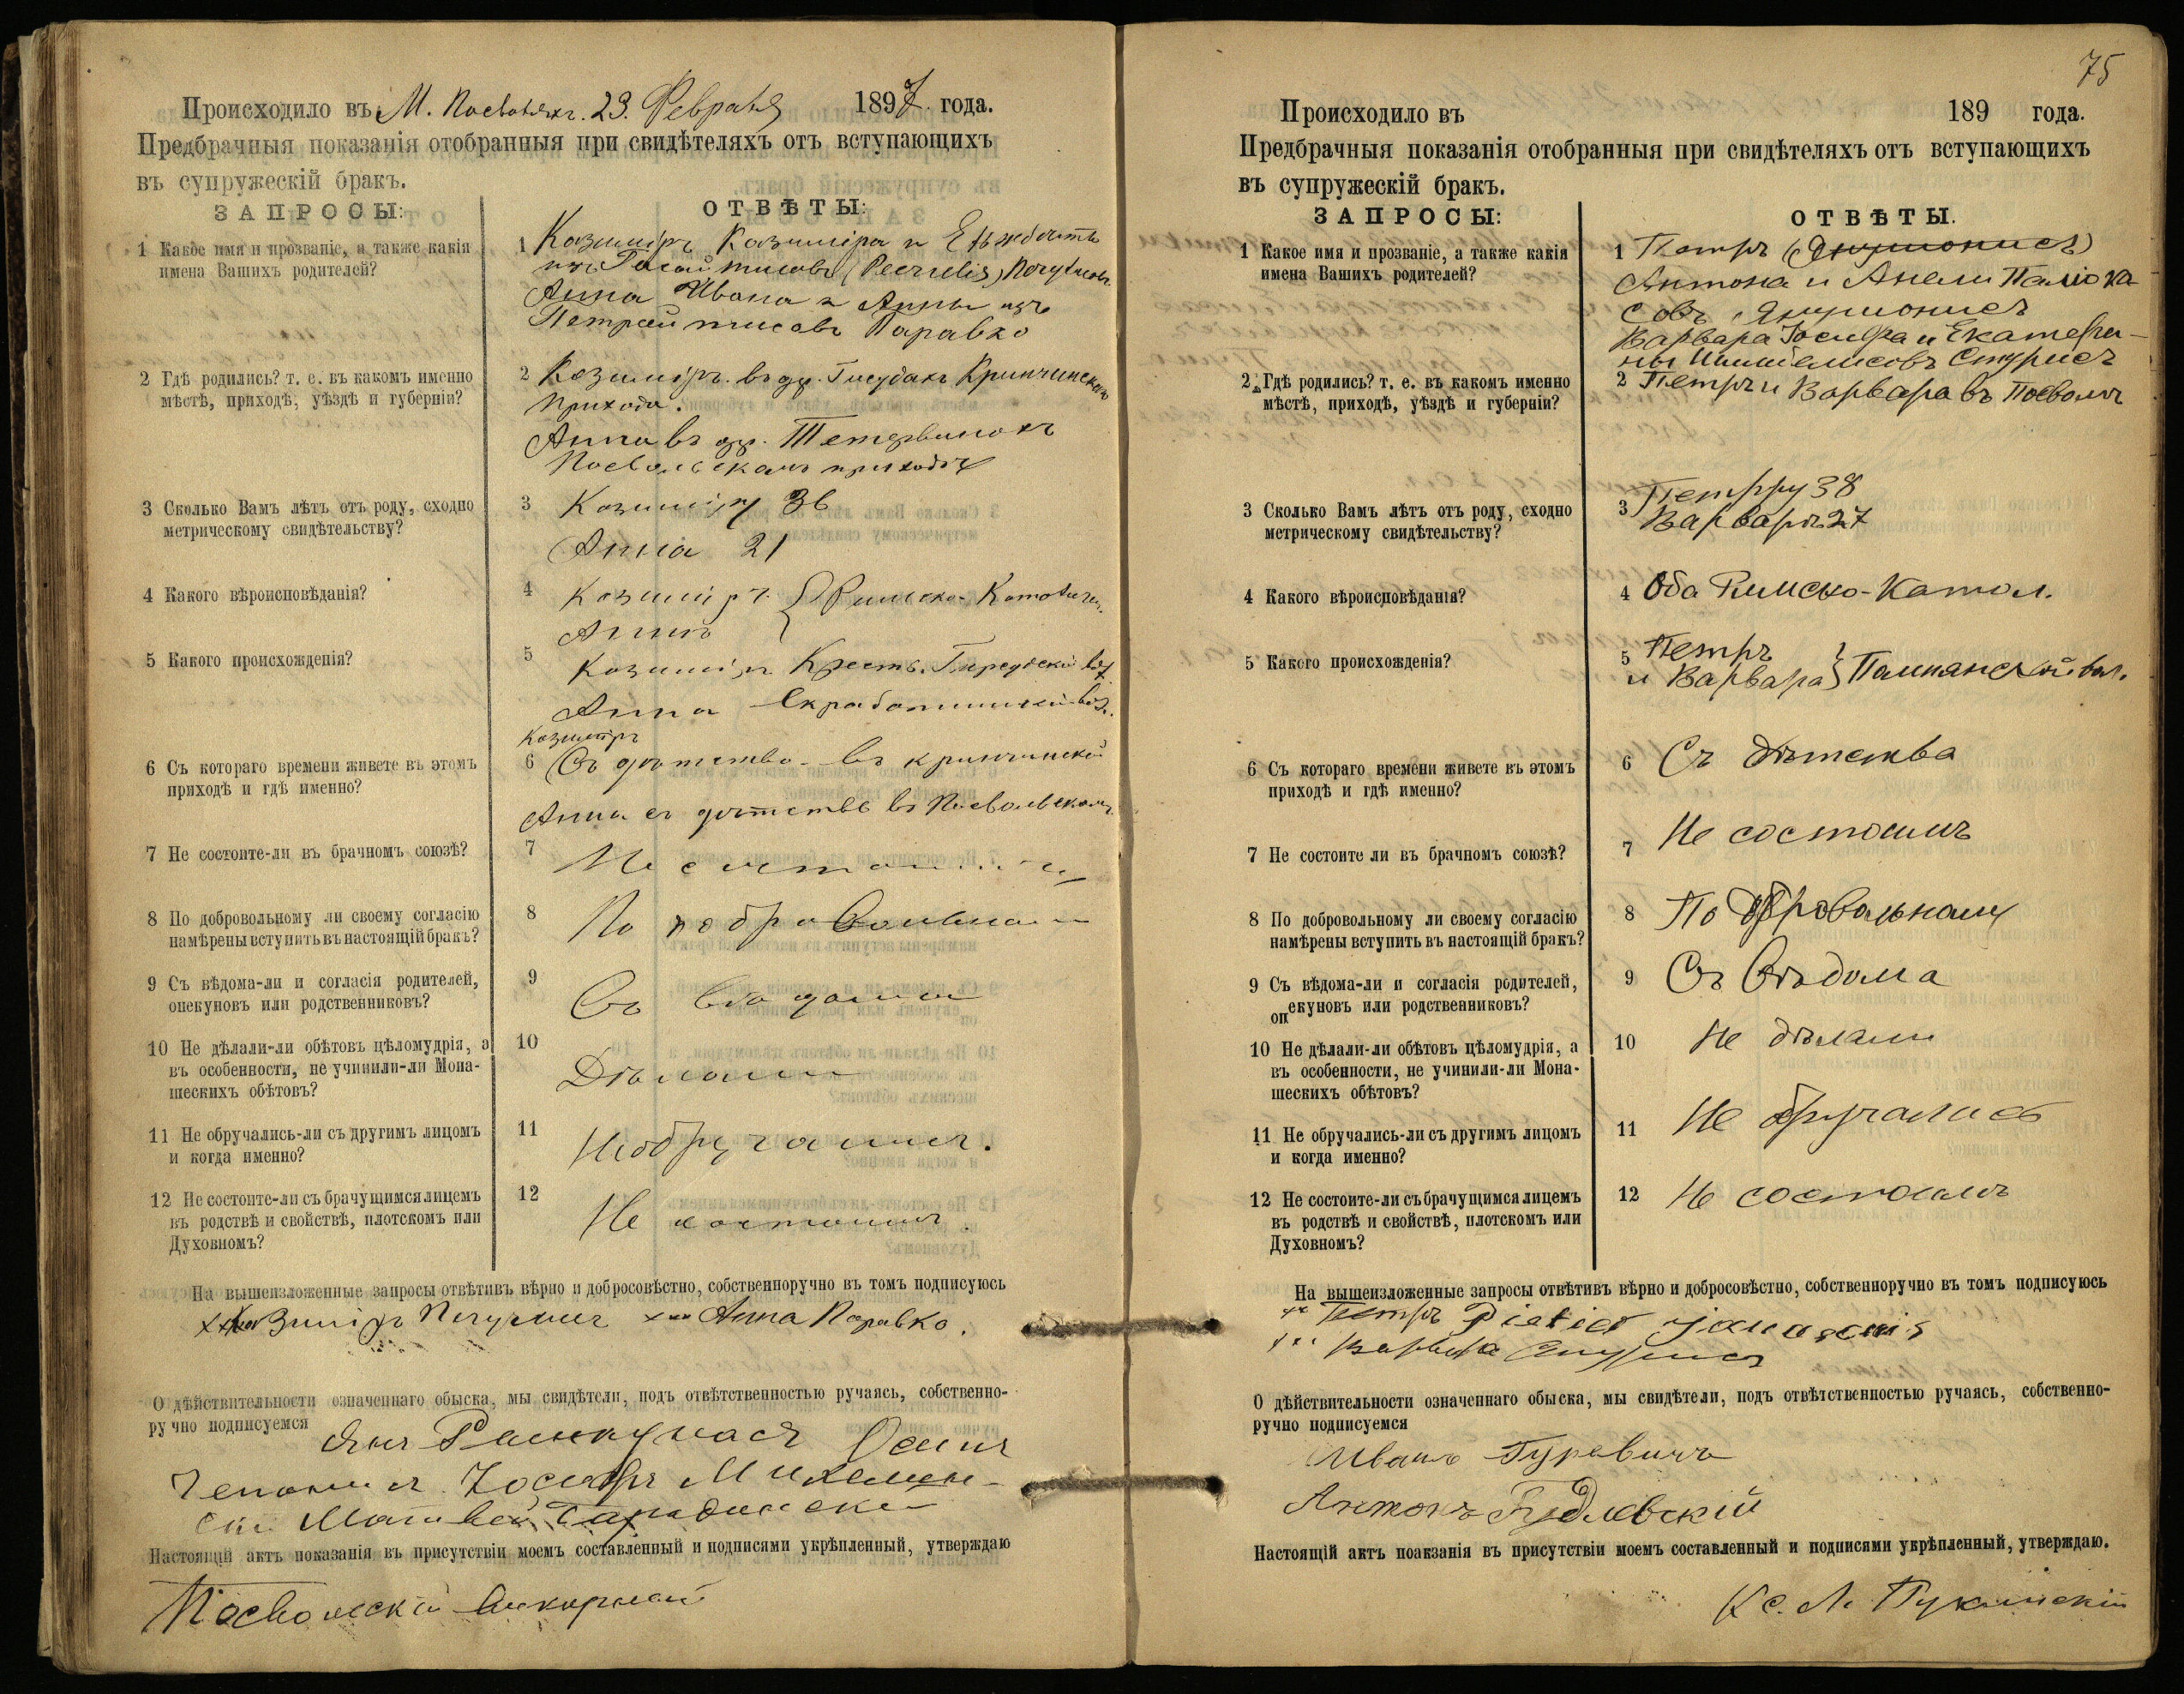 Происходило въ М. Посволѣхъ. 23. Февраля 1897 года.
Предбрачныя показанія отобранныя при свидѣтеляхъ отъ вступающихъ
въ супружескій бракъ.
ЗАПРОСЫ:
ОТВѢТЫ:
1 Какое имя и прозваніе, а также какія
имена Вашихъ родителей?
1 Казиміръ Казиміра и Ельжбеты
изъ
Анна Ивана и Анны изъ
Паравко
2 Гдѣ родились? т. е. въ какомъ именно
мѣстѣ, приходѣ, уѣздѣ и губерніи?
2 Казиміръ въ др. Кринчинскаго
прихода.
Анна въ др.
Посвольскомъ приходѣ
3 Сколько Вамъ лѣтъ отъ роду, сходно
метрическому свидѣтельству?
3 Казиміру 36
Анна 21
4 Какого вѣроисповѣданія?
4 Казиміръ Римско-Католич.
Анна
5 Какого происхожденія?
5 Казиміръ Крест. вол.
Анна вол.
6 Съ котораго времени живете въ этомъ
приходѣ и гдѣ именно?
Казиміръ
6 Съ дѣтства въ Кринчинской
Анна съ дѣтства въ Посвольскомъ
7 Не состоите-ли въ брачномъ союзѣ?
7 Не состоимъ
8 По добровольному ли своему согласію
намѣрены вступить въ настоящій бракъ?
8 По добровольному
9 Съ вѣдома-ли и согласія родителей,
опекуновъ или родственниковъ?
9 Съ вѣдома
10 Не дѣлали-ли обѣтовъ цѣломудрія, а
въ особенности, не учинили-ли Мона-
шескихъ обѣтовъ?
10 Дѣлали
11 Не обручались-ли съ другимъ лицомъ
и когда именно?
11 Необручались.
12 Не состоите-ли съ брачущимся лицемъ
въ родствѣ и свойствѣ, плотскомъ или
Духовномъ?
12 Не состоимъ.
На вышеизложенные запросы отвѣтивъ вѣрно и добросовѣстно, собственноручно въ томъ подписуюсь
ххх Казиміръ ххх Анна Паравко.
О дѣйствительности означеннаго обыска, мы свидѣтели, подъ отвѣтственностью ручаясь, собственно-
ручно подписуемся
Янъ Осипъ
Іосифъ
Матвей
Настоящій актъ показанія въ присутствіи моемъ составленный и подписями укрѣпленный, утверждаю
Посвольскій
75
Происходило въ 189 года.
Предбрачныя показанія отобранныя при свидѣтеляхъ отъ вступающихъ
въ супружескій бракъ.
ЗАПРОСЫ:
ОТВѢТЫ.
1 Какое имя и прозваніе, а также какія
имена Вашихъ родителей?
1 Петръ
Антона и Анели Паліока
совъ
Варвара Іосифа и Екатери-
ны
2 Гдѣ родились? т. е. въ какомъ именно
мѣстѣ, приходѣ, уѣздѣ и губерніи?
2 Петръ и Варвара въ Посволѣ
3 Сколько Вамъ лѣтъ отъ роду, сходно
метрическому свидѣтельству?
3 Петру 38
Варварѣ 27
4 Какого вѣроисповѣданія?
4 Оба Римско-Катол.
5 Какого происхожденія?
5 Петръ
и Варвара } Помпянской вол.
6 Съ котораго времени живете въ этомъ
приходѣ и гдѣ именно?
6 Съ дѣтства
7 Не состоите ли въ брачномъ союзѣ?
7 Не состоимъ
8 По добровольному ли своему согласію
намѣрены вступить въ настоящій бракъ?
8 По добровольному
9 Съ вѣдома-ли и согласія родителей,
опекуновъ или родственниковъ?
9 Съ вѣдома
10 Не дѣлали-ли обѣтовъ цѣломудрія, а
въ особенности, не учинили-ли Мона-
шескихъ обѣтовъ?
10 Не дѣлали
11 Не обручались-ли съ другимъ лицомъ
и когда именно?
11 Не обручались
12 Не состоите-ли съ брачущимся лицемъ
въ родствѣ и свойствѣ, плотскомъ или
Духовномъ?
12 Не состоимъ
На вышеизложенные запросы отвѣтивъ вѣрно и добросовѣстно, собственноручно въ томъ подписуюсь
Петръ
Варвара
О дѣйствительности означеннаго обыска, мы свидѣтели, подъ отвѣтственностью ручаясь, собственно-
ручно подписуемся
Иванъ Гуревичъ
Антонъ
Настоящій актъ поаказнія въ присутствіи моемъ составленный и подписями укрѣпленный, утверждаю.
Кс. Л.